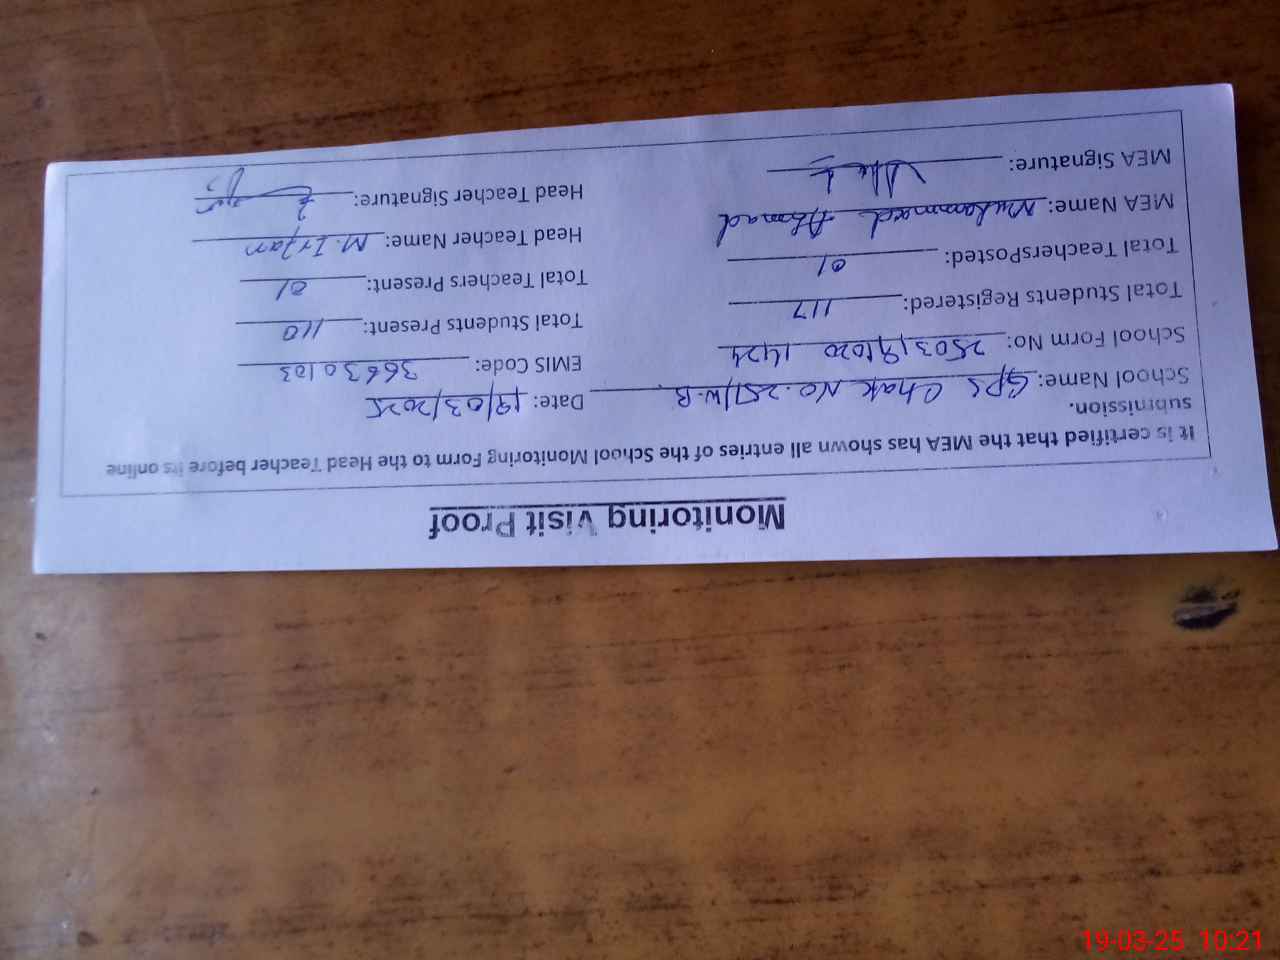 Monitoring Visit Proof
It is certified that the MEA has shown all entries of the School Monitoring Form to the Head Teacher before its online
submission.
School Name: GPS Chak No. 251/W.B Date: 19/03/2025
School Form No: 2503191020 1424 EMIS Code: 36630103
Total Students Registered: 117 Total Students Present: 110
Total TeachersPosted: 01 Total Teachers Present: 01
MEA Name: Muhammad Ahmad Head Teacher Name: M. Irfan
MEA Signature: Head Teacher Signature:
19-03-25 10:21